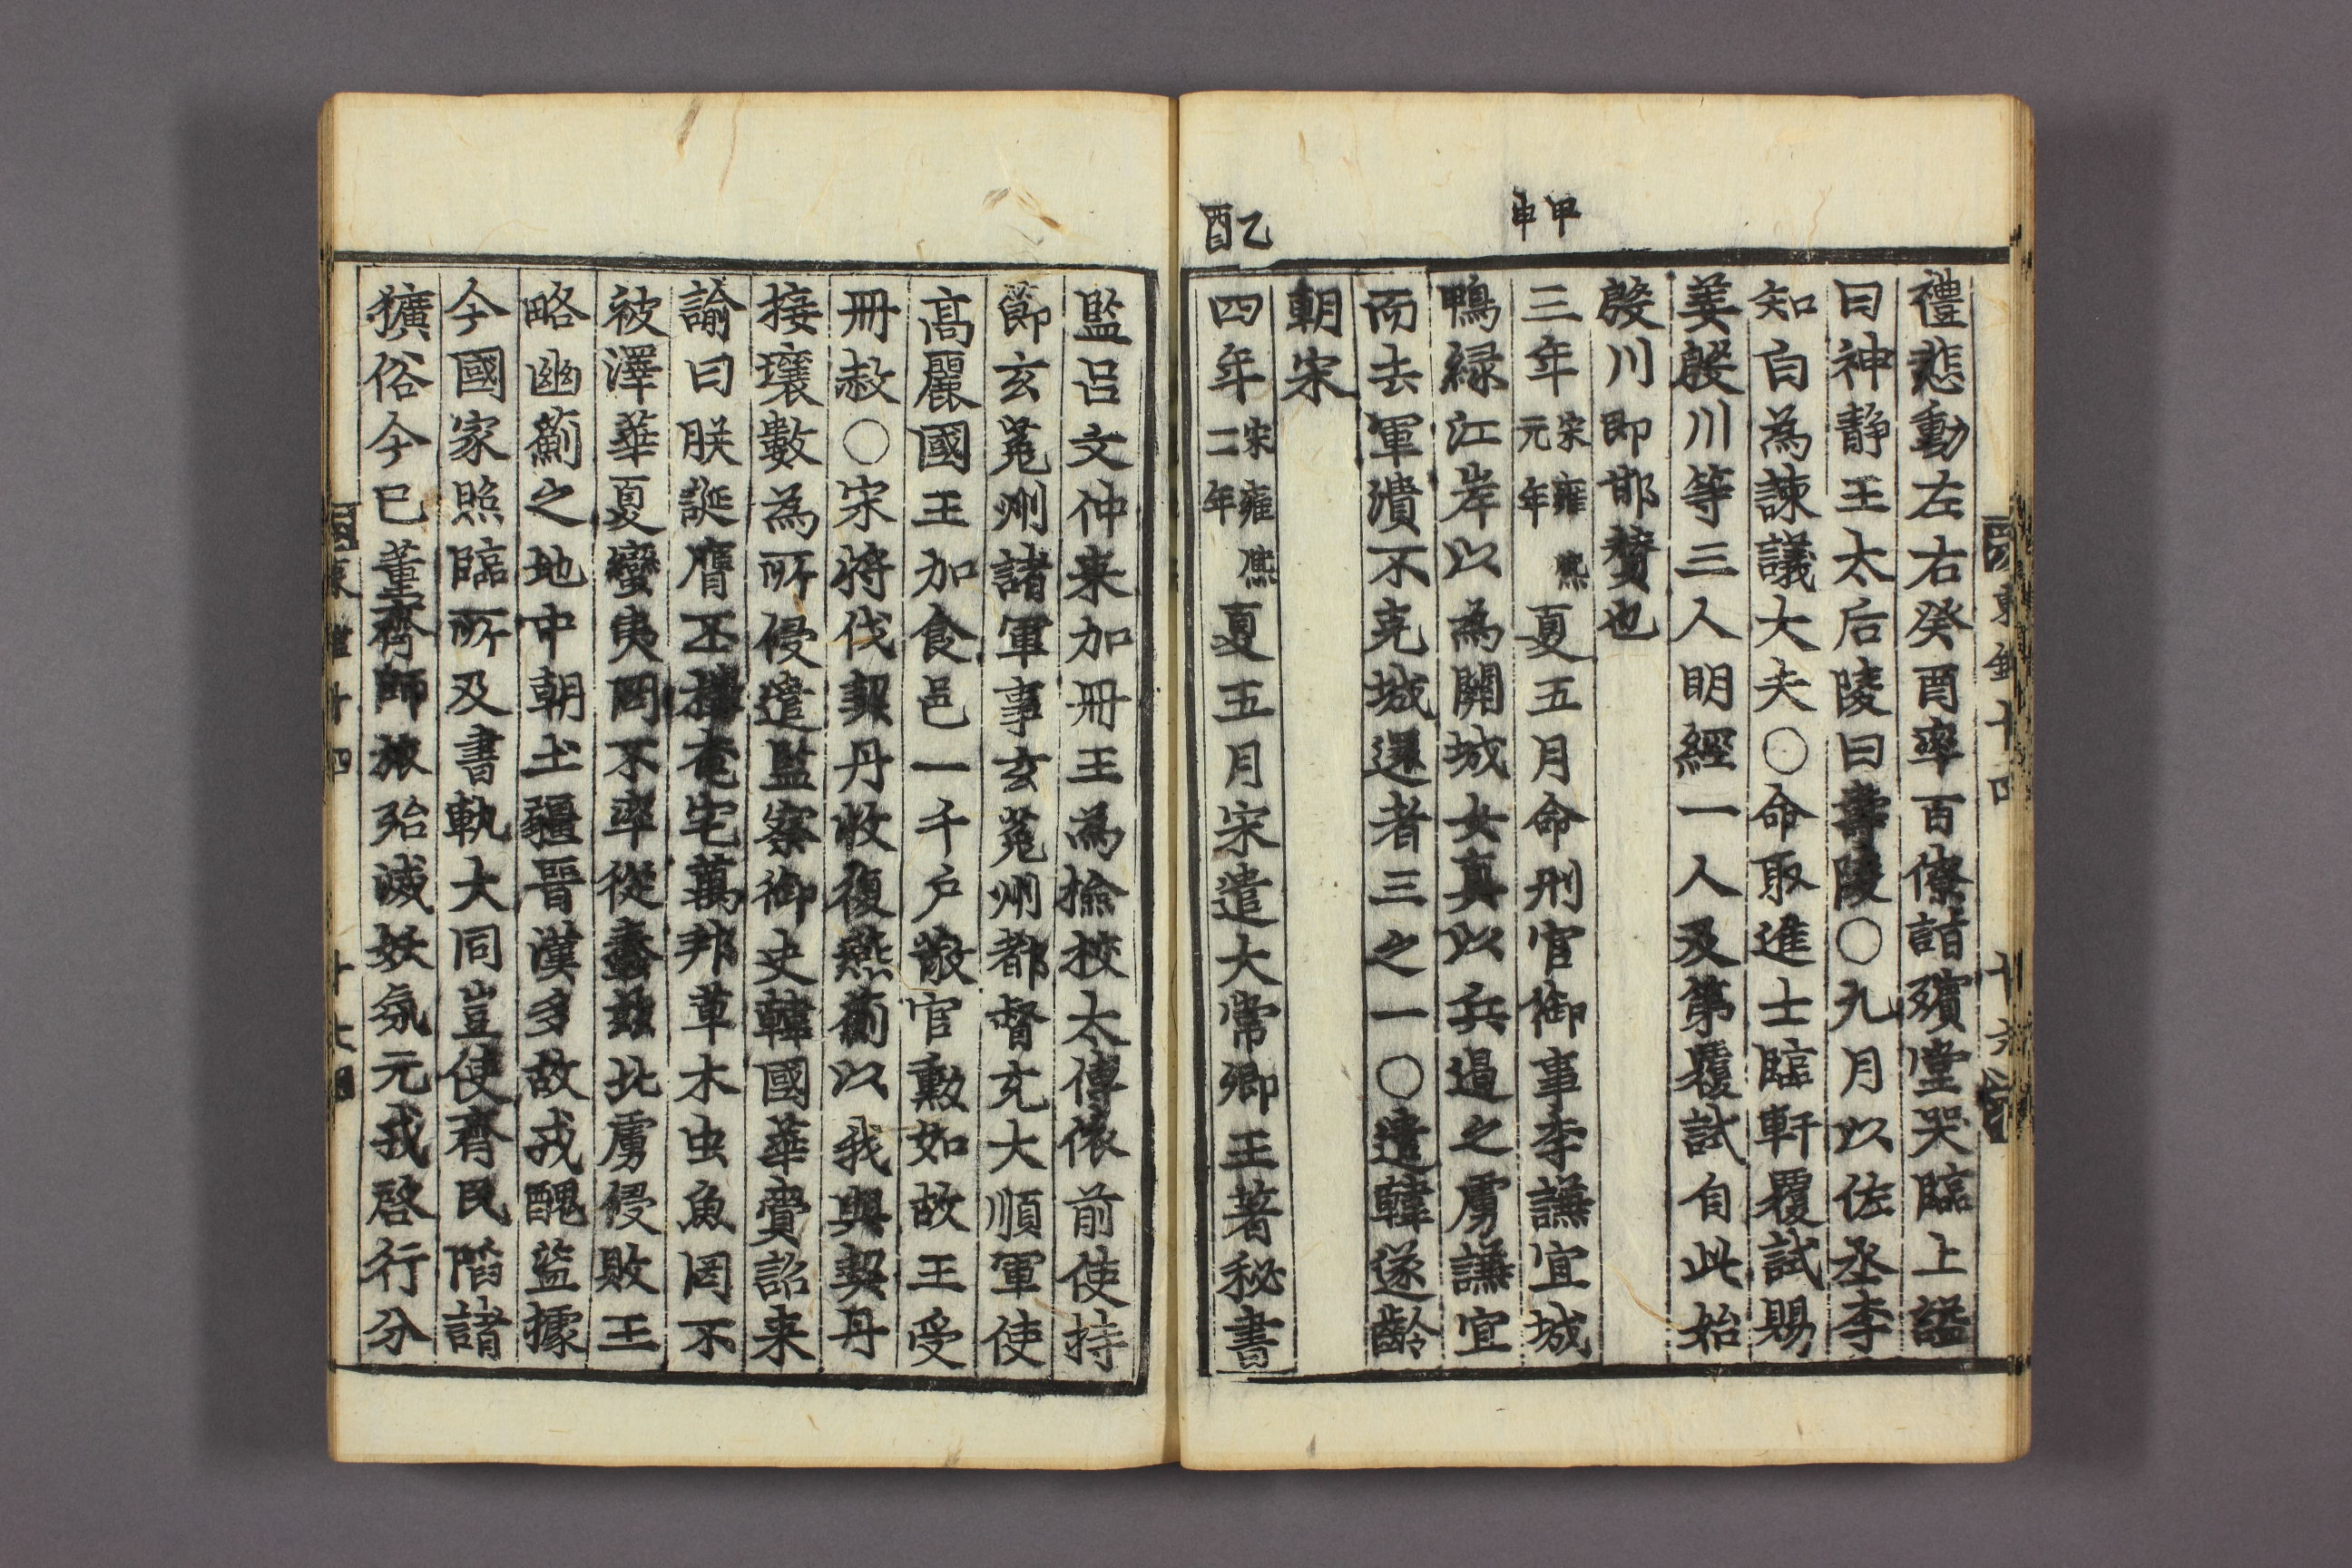 禮悲動左右癸酉率百僚詣殯堂哭臨上諡
曰神静王太后陵曰壽陵○九月以佐丞李
知白為諫議大夫○命取進士臨軒覆試賜
姜殷川等三人明經一人及第覆試自此始
殷川即邯賛也
甲申
三年宋雍熙元年夏五月命刑官御事李謙宜城
鴨緑江岸以為關城女真以兵過之虜謙宜
而去軍潰不克城還者三之一○遣韓遂齡
朝宋
乙酉
四年宋雍熈二年夏五月宋遣大常卿王著秘書
監呂文仲来加冊王為撿校太傅依前使持
節玄菟州諸軍事玄菟州都督充大順軍使
高麗國王加食邑一千户散官勲如故王受
冊赦○宋将伐契丹收復燕薊以我與契丹
接壤數為所侵遣監察御史韓國華賫詔来
諭曰朕誕膺丕搆奄宅萬邦草木虫魚罔不
被澤華夏蠻夷罔不率從蠢茲北虜侵敗王
略幽薊之地中朝土疆晉漢多故戎醜盜據
今國家照臨所及書軌大同豈使齊民陷諸
獷俗今已董齊師旅殆滅妖氛元戎啓行分